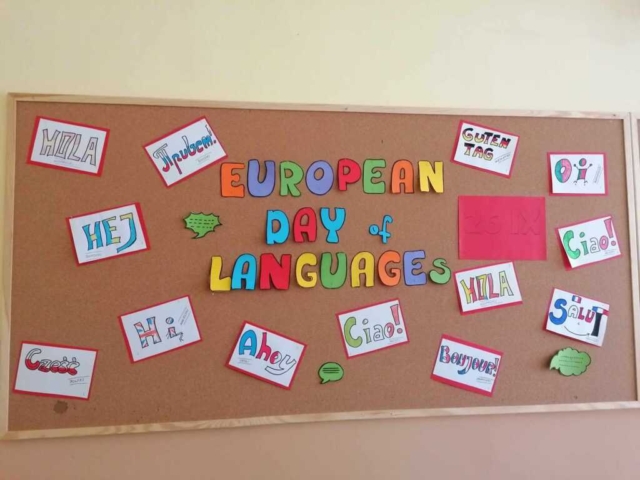 HOLA
Привет!
GUTEN
TAG
EUROPEAN
DAY of
LANGUAGES
Oi
HEJ
26 IX
Ciao!
HOLA
SALUT
Hi,
Ahoy
Ciao!
Bonjour!
Cześć